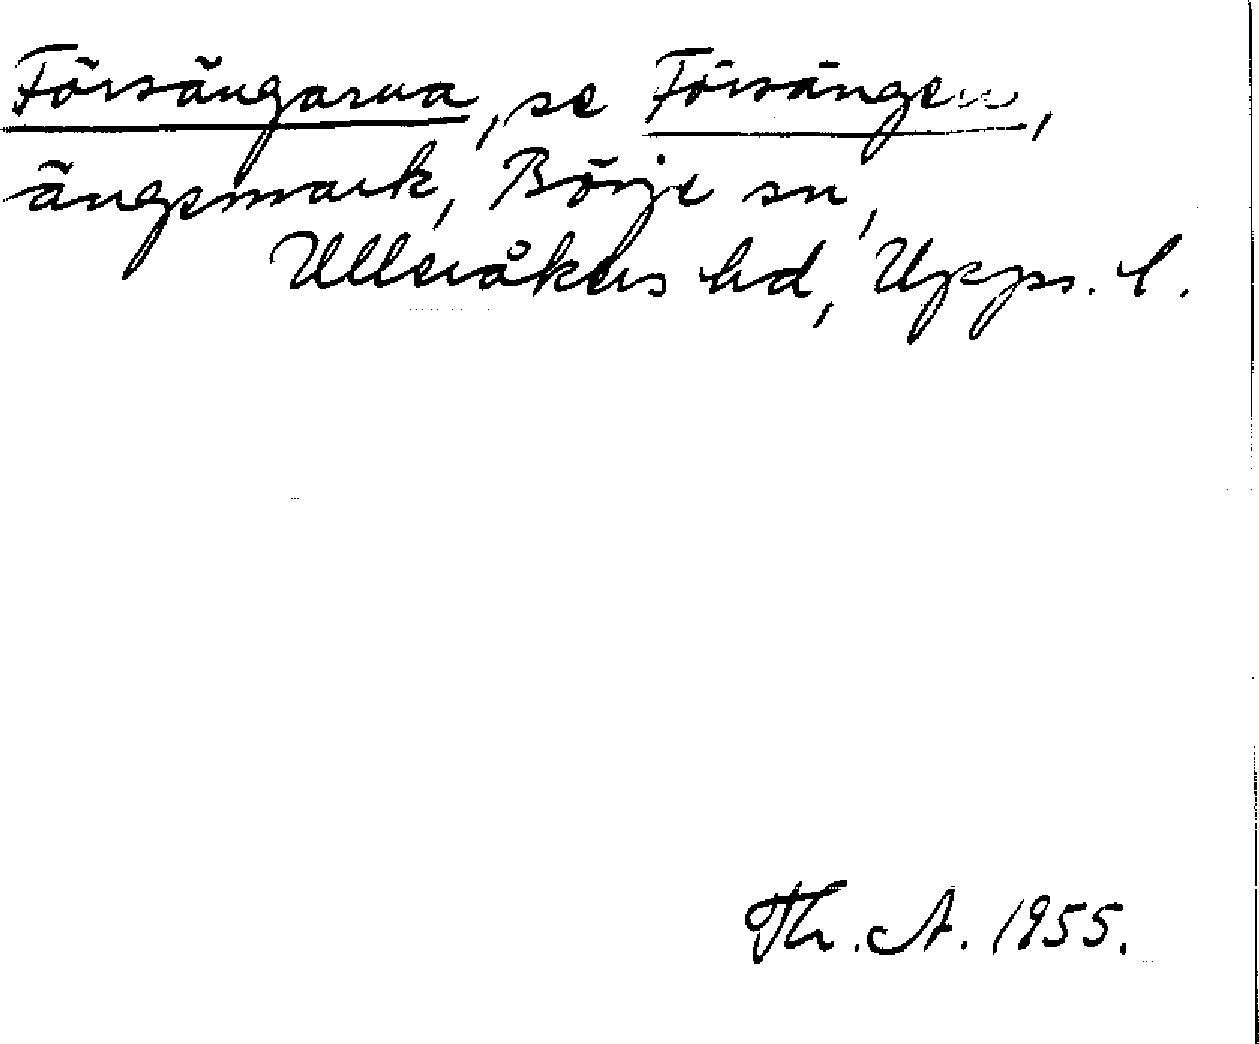 Försängarna, se Försängen,
ängsmark, Börje sn,
Ulleråkers hd, Upps. l.
Th. A. 1955.